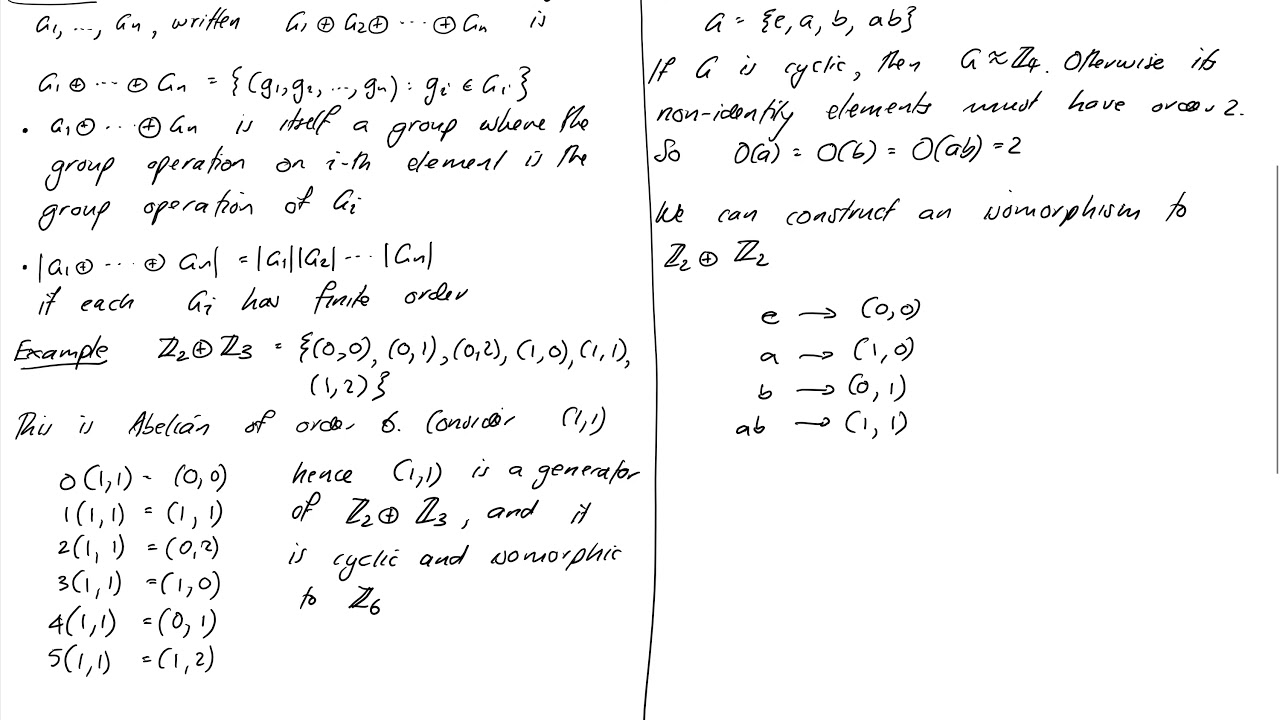 G₁, ..., Gn, written G₁ ⊕ G₂ ⊕ ··· ⊕ Gn is
G₁ ⊕ ··· ⊕ Gn = {(g₁, g₂, ..., gn) : gi ∈ Gi}
• G₁ ⊕ ··· ⊕ Gn is itself a group where the
group operation on i-th element is the
group operation of Gi
• |G₁ ⊕ ··· ⊕ Gn| = |G₁||G₂| ··· |Gn|
if each Gi has finite order
Example ℤ₂ ⊕ ℤ₃ = {(0,0), (0,1), (0,2), (1,0), (1,1),
(1,2)}
This is Abelian of order 6. Consider (1,1)
0(1,1) = (0,0)
1(1,1) = (1,1)
2(1,1) = (0,2)
3(1,1) = (1,0)
4(1,1) = (0,1)
5(1,1) = (1,2)
hence (1,1) is a generator
of ℤ₂ ⊕ ℤ₃, and it
is cyclic and isomorphic
to ℤ₆
G = {e, a, b, ab}
If G is cyclic, then G ≈ ℤ₄. Otherwise its
non-identity elements must have order 2.
So O(a) = O(b) = O(ab) = 2
We can construct an isomorphism to
ℤ₂ ⊕ ℤ₂
e → (0,0)
a → (1,0)
b → (0,1)
ab → (1,1)